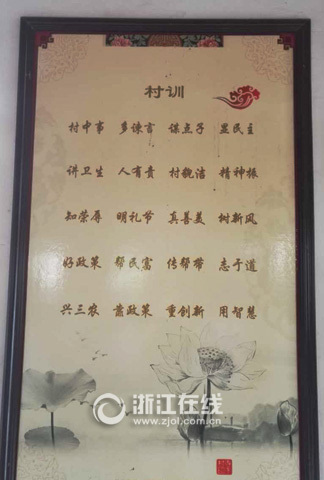 村训
村中事 多谏言 谋点子 显民主
讲卫生 人有责 村貌洁 精神振
知荣辱 明礼节 真善美 树新风
好政策 帮民富 传帮带 志于道
兴三农 靠政策 重创新 用智慧
浙江在线
www.zjol.com.cn